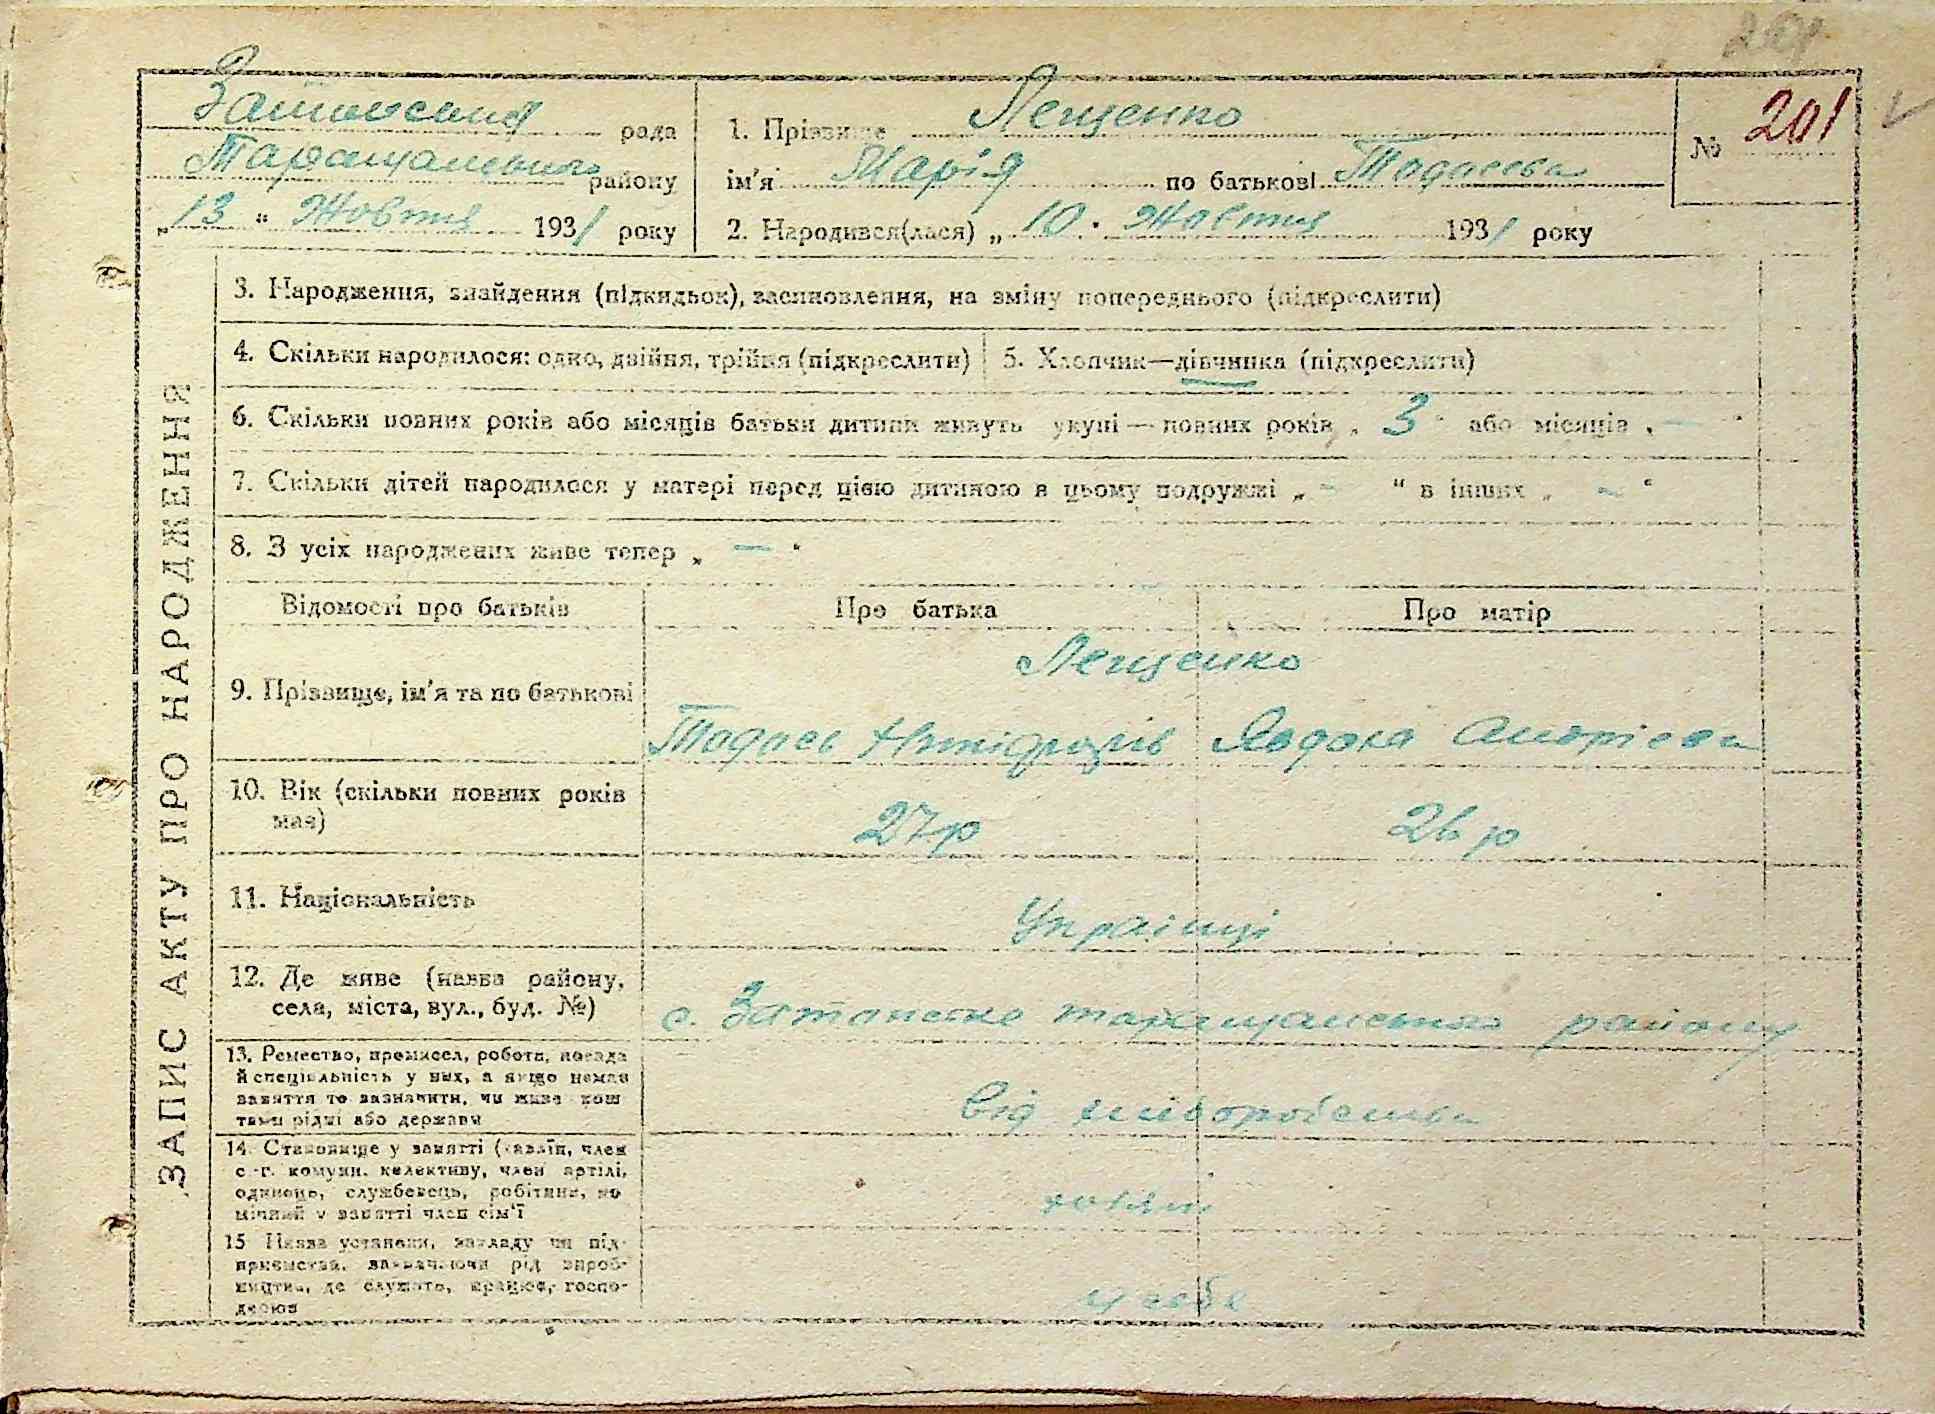 201
ЗАПИС АКТУ ПРО НАРОДЖЕННЯ
рада
Таращанського району
„13“ Жовтня 1931 року
1. Прізвище Лещенко
ім'я Марія по батькові Тодосева
2. Народився(лася) „10" Жовтня 1931 року
№ 201
3. Народження, знайдення (підкидьок), засиновлення, на зміну попереднього (підкреслити)
4. Скільки народилося: одно, двійня, трійня (підкреслити)
5. Хлопчик—дівчинка (підкреслити)
6. Скільки повних років або місяців батьки дитини живуть укупі — повних років „3" або місяців „—"
7. Скільки дітей народилося у матері перед цією дитиною в цьому подружжі „—“ в інших „—"
8. З усіх народжених живе тепер „—"
Відомості про батьків Про батька Про матір
9. Прізвище, ім'я та по батькові
Лещенко
Тодось Явдоха Андрієва
10. Вік (скільки повних років має)
27 р 26 р
11. Національність
Українці
12. Де живе (назва району,
села, міста, вул., буд. №)
с. Затонське таращанського району
13. Ремество, промисел, робота, посада
й спеціяльність у них, а якщо немає
заняття то зазначити, чи живе кош
тами рідні або держави
від хліборобства
14. Становище у занятті (хазяїн, член
с.-г. комуни, колективу, член артілі,
одинець, службовець, робітник, по
мічний у занятті член сім'ї
хазяїн
15 Назва установи, закладу чи під-
приємства, зазначаючи рід вироб-
ництва, де служить, працює, госпо-
дарює
у себе